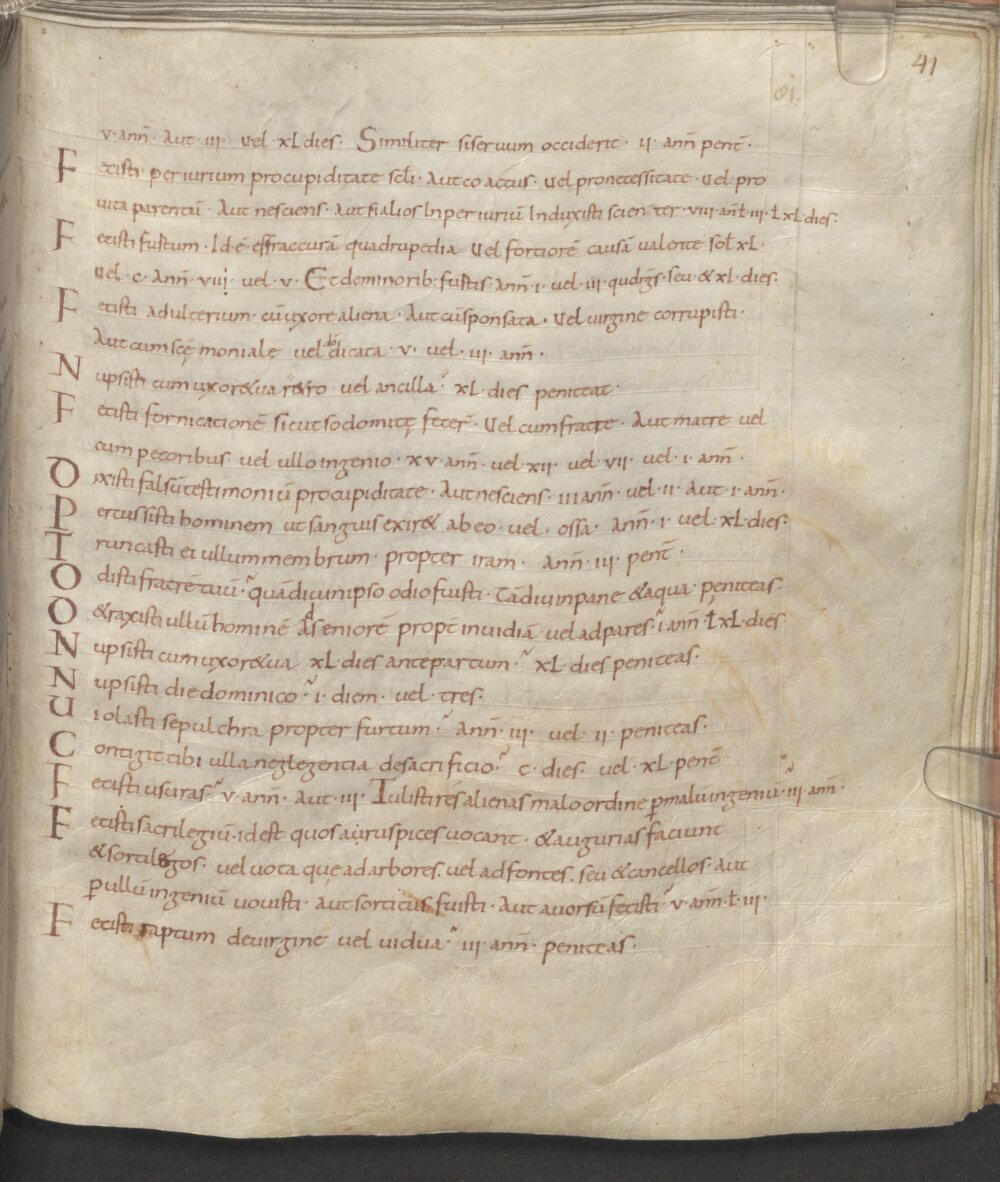 41
v · ann̄ · Aut · iii · vel · xl dies · Similiter si seruum occiderit · ii · ann̄ penт̄ ·
Fecisti periurium pro cupiditate scł̄i · Aut coactus · Vel pro necessitate · Vel pro
uita parentū · Aut nesciens · Aut si alios In periuriū Induxisti scienter · viii · ann̄ ł iii · ł xl dies ·
Fecisti furtum · Id ē effraccurā quadrupedia Vel fortiorē causā ualente soł xl ·
Vel · c · Ann̄ · viii · vel · v · Et de minorib: furtis · Ann̄ · i · vel · iii · qudrḡs · seu & xl · dies ·
Fecisti adulterium · cū uxore aliena · Aut cū sponsata · Vel uirgine corrupisti ·
Aut cum scę moniale vel dō dicata · v · vel · iii · ann̄ ·
Nupsisti cum uxore tua retro vel ancilla · xl · dies peniteat ·
Fecisti fornicationē sicut sodomitę fecer̄ · Vel cum fratre · Aut matre vel
cum pecoribus vel ullo ingenio · xv · ann̄ · vel · xii · vel · vii · vel · i · ann̄ ·
Dixisti falsū testimoniū pro cupiditate · Aut nesciens · iii ann̄ · vel · ii · Aut · i · ann̄ ·
Percussisti hominem ut sanguis exir& ab eo · vel · ossa · Ann̄ · i · vel · xl · dies ·
Truncasti ei ullum membrum · propter iram · Ann̄ · iii · penт̄ ·
Odisti fratrē tuū · quādiu in ipso odio fuisti · Tādiu in pane & aqua · peniteas ·
O&raxisti ullū hominē Ad seniorē propт̄ inuidiā vel ad pares · i ann̄ ł xl · dies
Nupsisti cum uxore tua xl · dies ante partum · xl · dies peniteas ·
Nupsisti die dominico · i · diem · vel · tres ·
Uiolasti sepulchra propter furtum · Ann̄ · iii · vel · ii · peniteas ·
Contigit tibi ulla neglegentia de sacrificio · c · dies · vel · xl · penт̄ ·
Fecisti usuras · v · ann̄ · Aut · iii · Tulisti res alienas malo ordine p̱ malū ingeniū · iii · ann̄ ·
Fecisti sacrilegiū · id est quos auruspices uocant · & augurias faciunt
& sortilegos · vel uota que ad arbores · vel ad fontes · seu & cancellos · aut
p̱ ullū ingeniū uouisti · Aut sorticus fuisti · Aut auorsū fecisti · v · ann̄ · ł · iii ·
Fecisti raptum de uirgine vel uidua · iii · ann̄ · peniteas ·